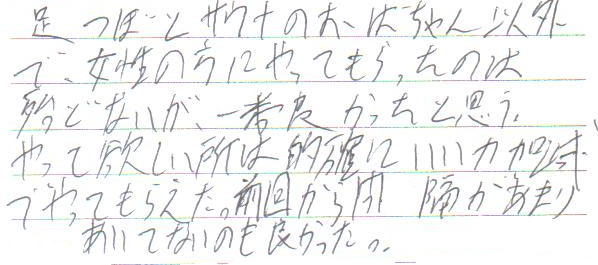 足つぼとサウナのおばちゃん以外
で、女性の方にやってもらったのは
殆どないが、一番良かったと思う。
やって欲しい所は的確にいい力加減
でやってもらえた。前回から間隔があまり
あいてないのも良かった。